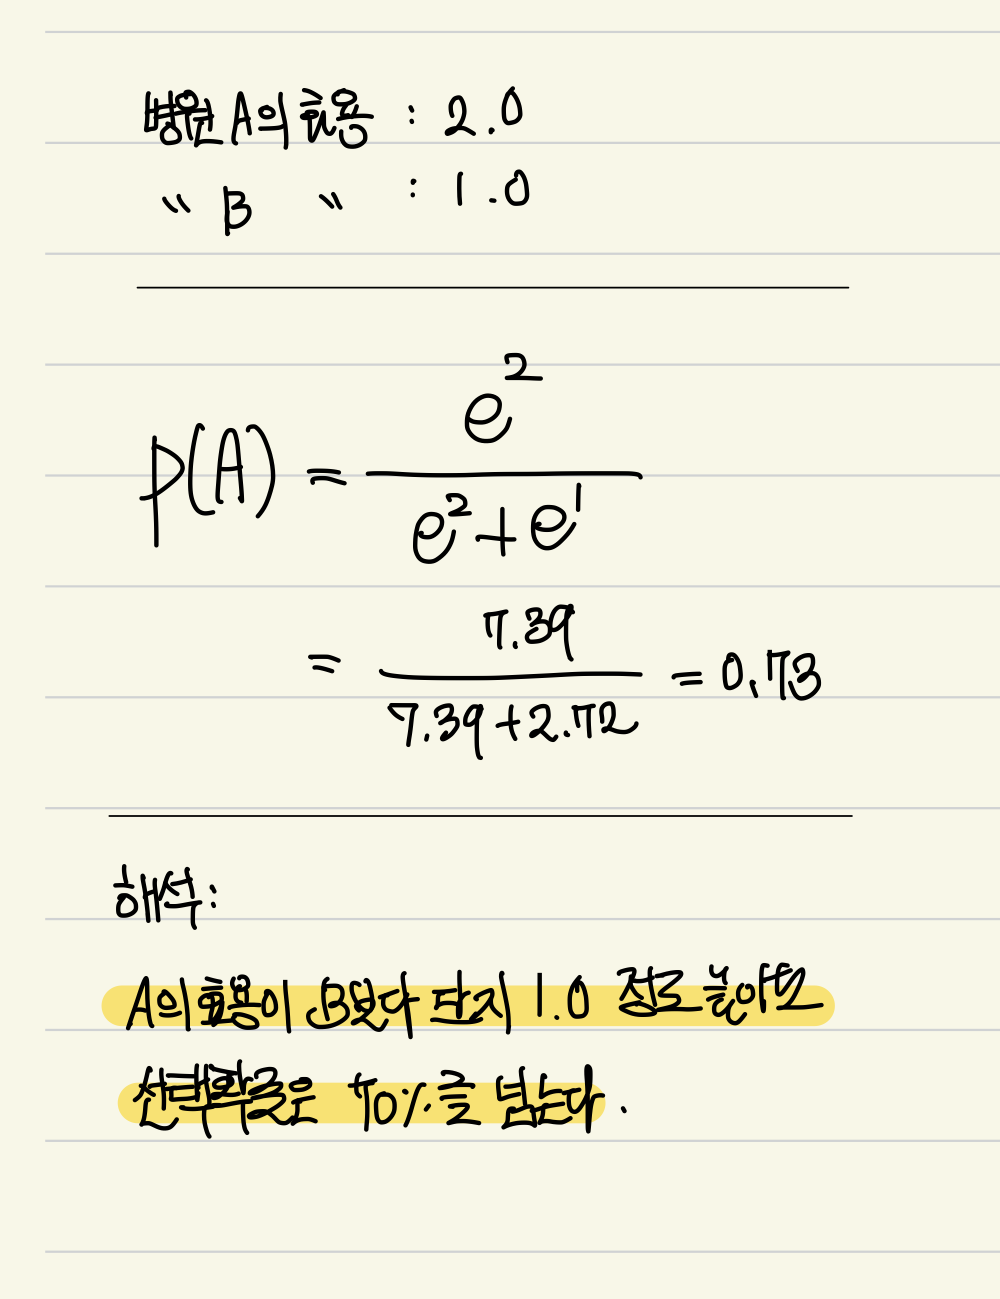 병원 A의 효용 : 2.0
〃 B 〃 : 1.0
p(A) = e^2 / (e^2 + e^1)
= 7.39 / (7.39 + 2.72) = 0.73
해석:
A의 효용이 B보다 단지 1.0 정도 높아도
선택확률은 70%를 넘는다.